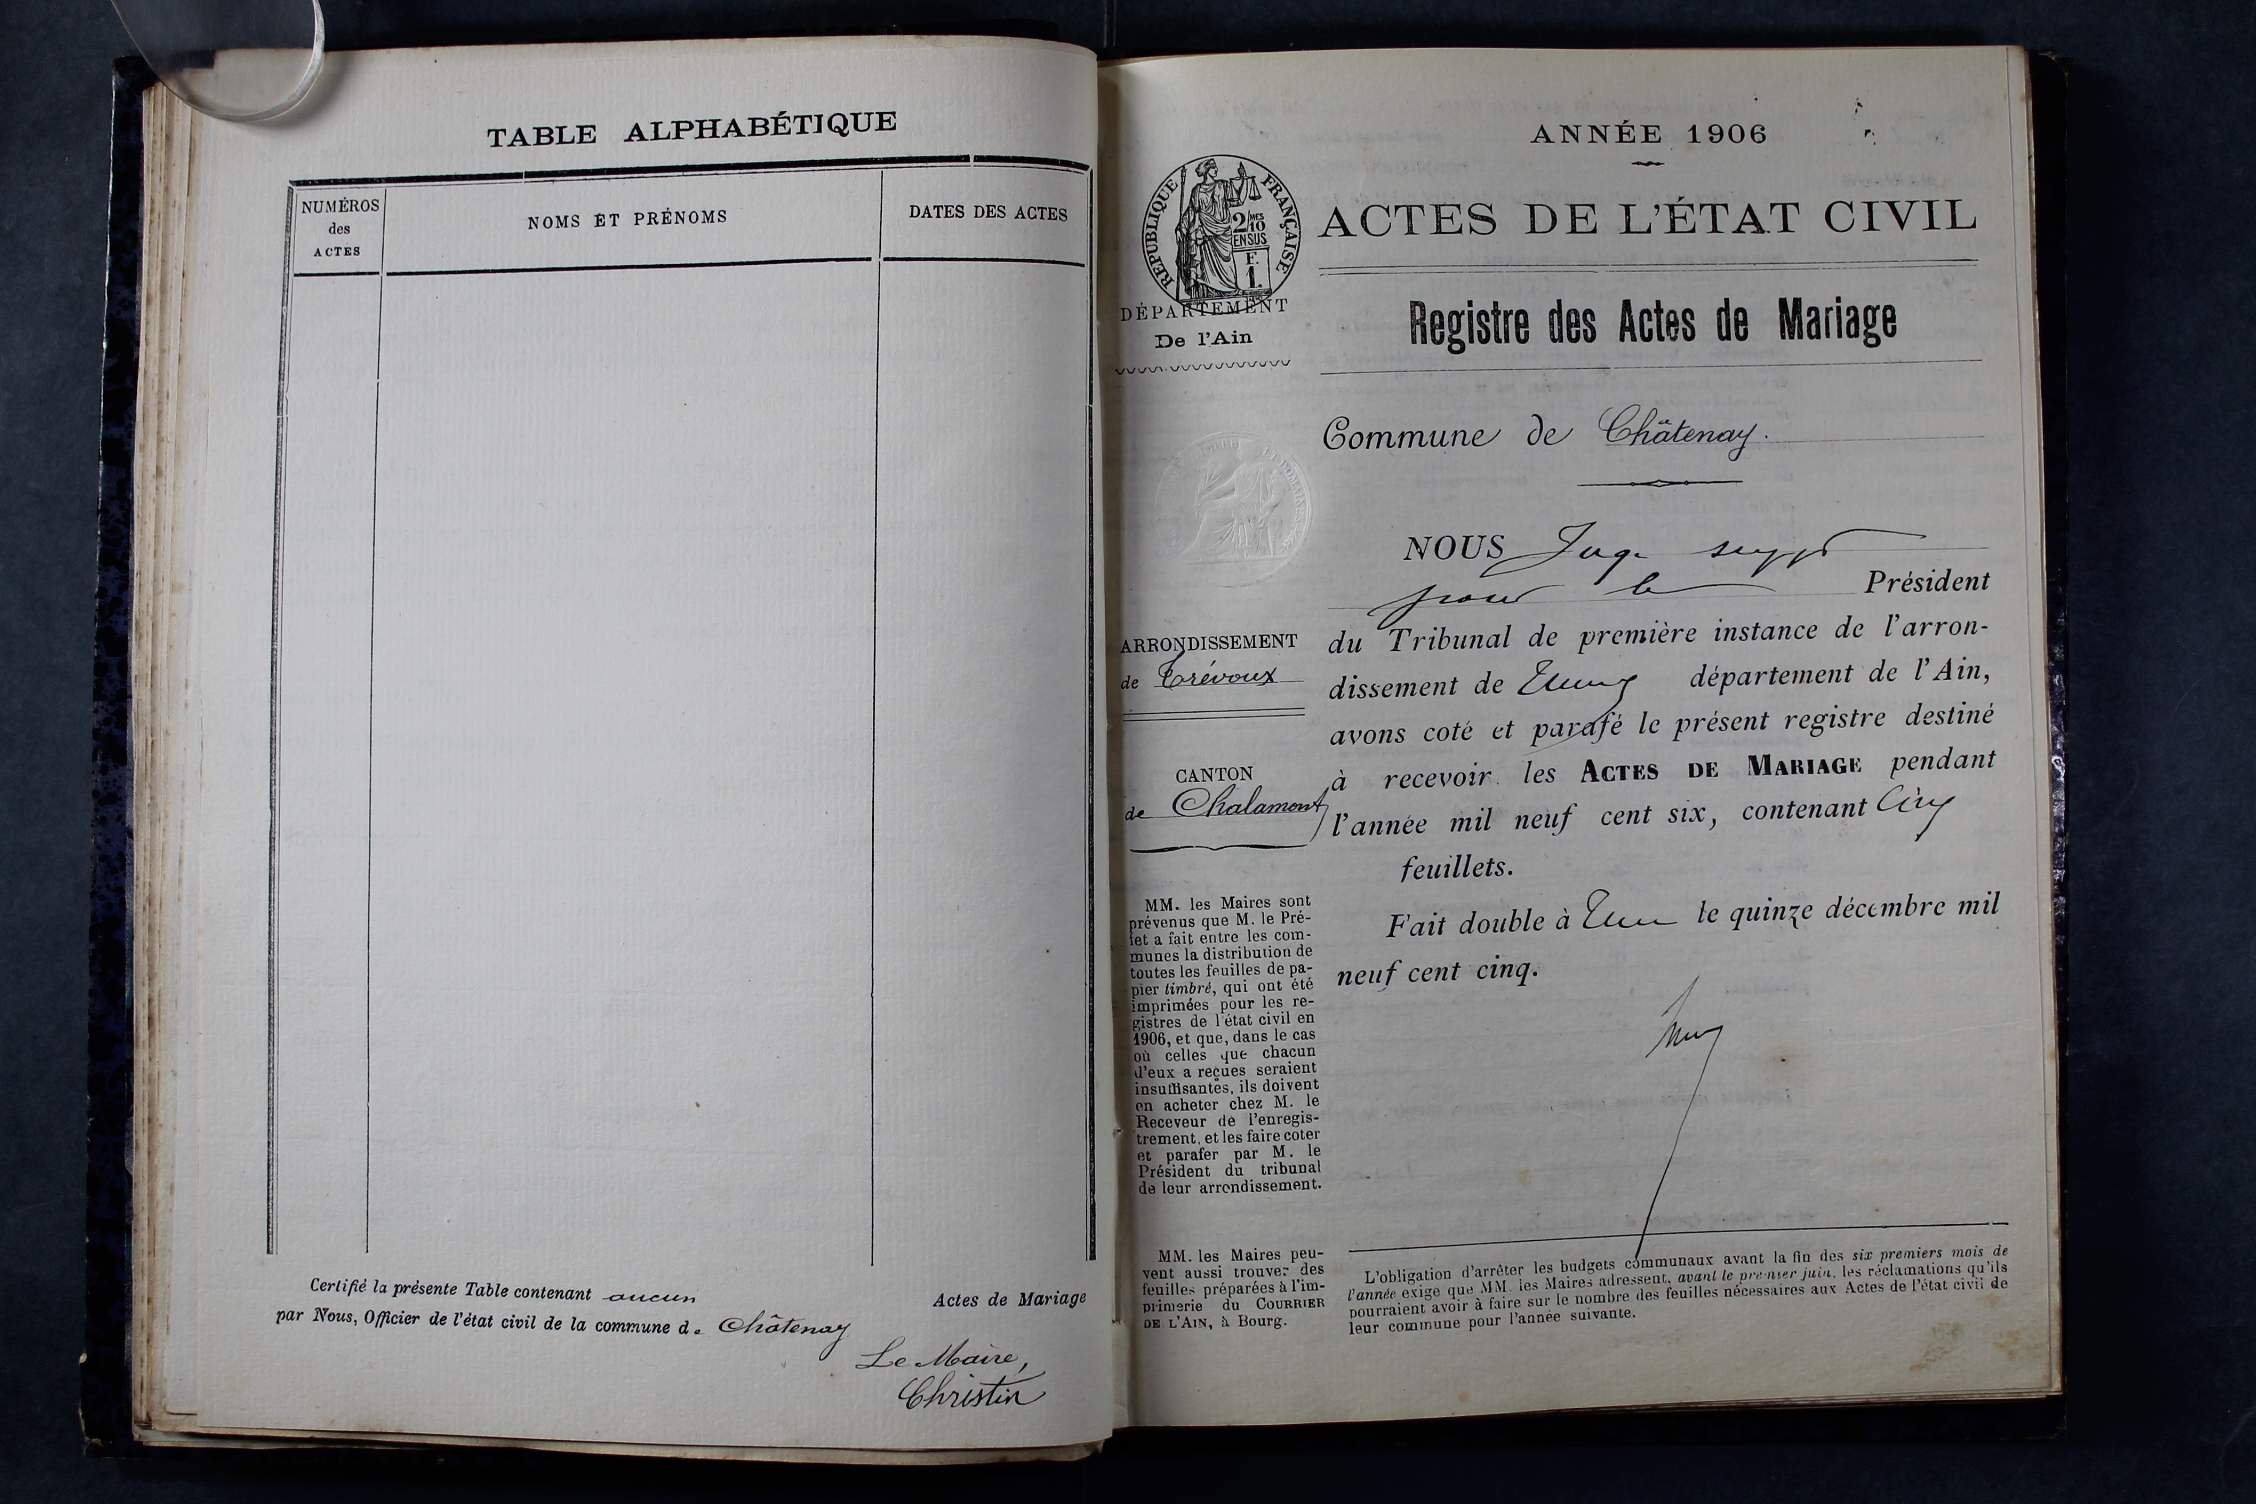 TABLE ALPHABÉTIQUE
NUMÉROS
des
ACTES
NOMS ET PRÉNOMS
DATES DES ACTES
Certifié la présente Table contenant aucun Actes de Mariage
par Nous, Officier de l'état civil de la commune de Châtenay
Le Maire,
Christin
ANNÉE 1906
RÉPUBLIQUE FRANÇAISE
2/MES
10
EN SUS
F.
1.
ACTES DE L'ÉTAT CIVIL
DÉPARTEMENT
De l'Ain
Registre des Actes de Mariage
Commune de Châtenay.
ARRONDISSEMENT
de Trévoux
CANTON
de Chalamont
MM. les Maires sont
prévenus que M. le Pré-
fet a fait entre les com-
munes la distribution de
toutes les feuilles de pa-
pier timbré, qui ont été
imprimées pour les re-
gistres de l'état civil en
1906, et que, dans le cas
où celles que chacun
d'eux a reçues seraient
insuffisantes, ils doivent
en acheter chez M. le
Receveur de l'enregis-
trement, et les faire coter
et parafer par M. le
Président du tribunal
de leur arrondissement.
MM. les Maires peu-
vent aussi trouver des
feuilles préparées à l'im-
primerie du COURRIER
DE L'AIN, à Bourg.
NOUS Juge suppt
pour le Président
du Tribunal de première instance de l'arron-
dissement de département de l'Ain,
avons coté et parafé le présent registre destiné
à recevoir les ACTES DE MARIAGE pendant
l'année mil neuf cent six, contenant Cinq
feuillets.
Fait double à le quinze décembre mil
neuf cent cinq.
L'obligation d'arrêter les budgets communaux avant la fin des six premiers mois de
l'année exige que MM. les Maires adressent, avant le premier juin, les réclamations qu'ils
pourraient avoir à faire sur le nombre des feuilles nécessaires aux Actes de l'état civil de
leur commune pour l'année suivante.